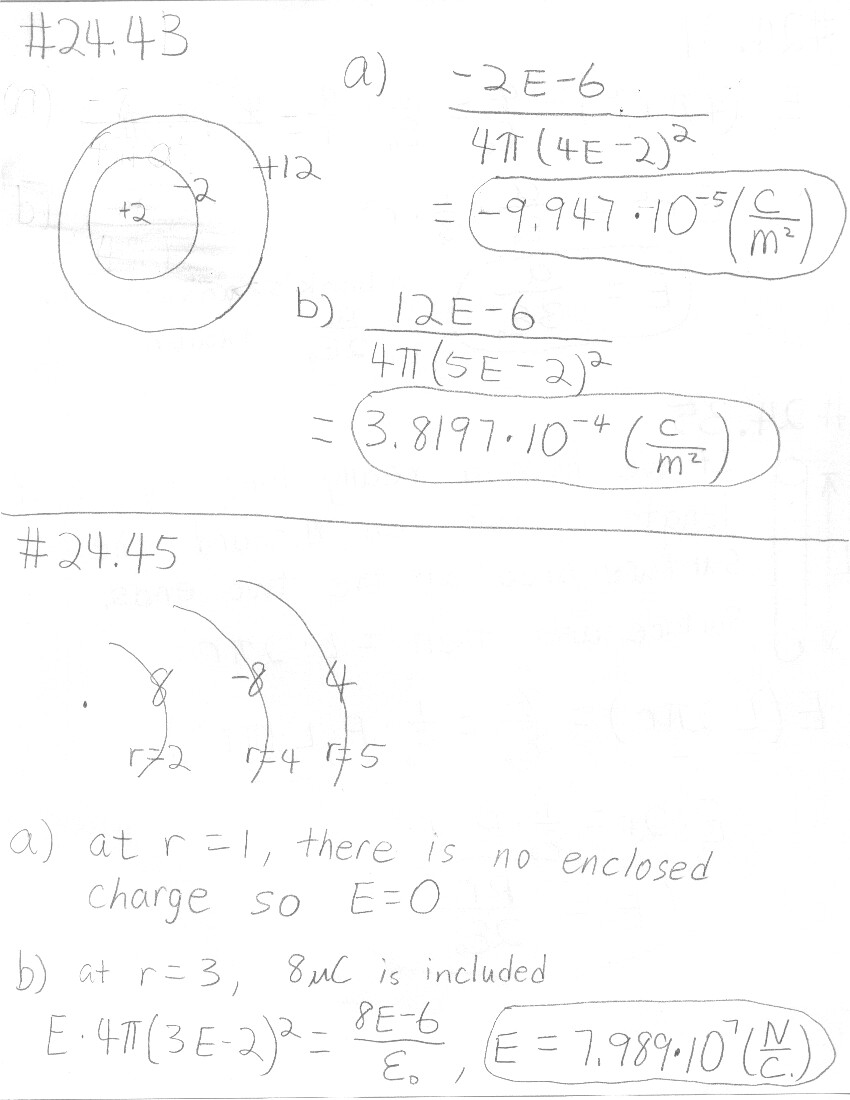 #24.43
+2
-2
+12
a) -2E-6
4π(4E-2)²
= -9.947·10⁻⁵ (C/m²)
b) 12E-6
4π(5E-2)²
= 3.8197·10⁻⁴ (C/m²)
#24.45
8 -8 4
r=2 r=4 r=5
a) at r=1, there is no enclosed
charge so E=0
b) at r=3, 8μC is included
E·4π(3E-2)² = 8E-6/ε₀, E = 7.989·10⁷ (N/C)